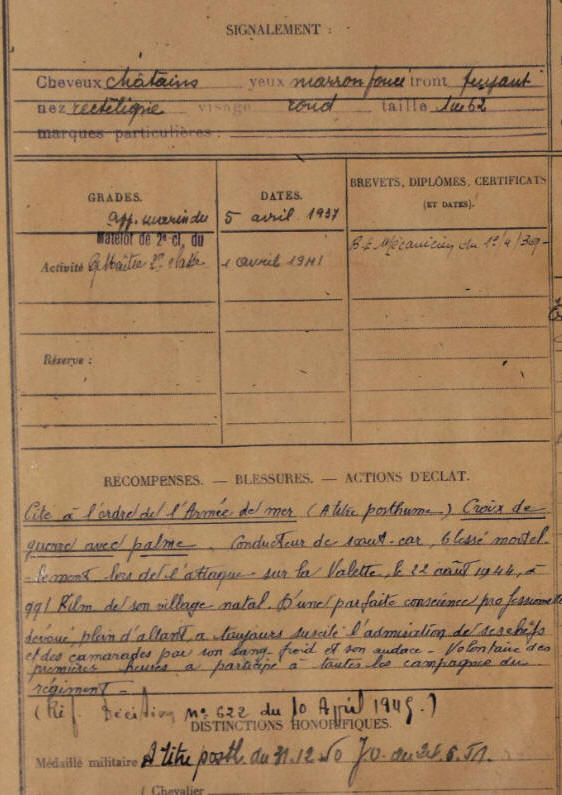 SIGNALEMENT :
Cheveux châtains yeux marron foncé front fuyant
nez rectiligne visage rond taille 1m62
marques particulières :
GRADES. DATES. BREVETS, DIPLÔMES, CERTIFICATS
(ET DATES).
app. marin du 5 avril 1937
Matelot de 2e cl. du
Activité Qr Maître 2e classe 1 avril 1941 B.E. Mécanicien du
Réserve :
RÉCOMPENSES. — BLESSURES. — ACTIONS D'ÉCLAT.
Cité à l'ordre de l'Armée de mer (A titre posthume) Croix de
guerre avec palme. Conducteur de scout-car, blessé mortel-
-lement lors de l'attaque sur la Valette, le 22 août 1944, à
qq/ Kilm de son village natal. D'une parfaite conscience professionnelle
dévoué, plein d'allant, a toujours suscité l'admiration de ses chefs
et des camarades par son sang-froid et son audace - Volontaire des
premières heures a participé à toutes les campagnes du
régiment -
(Réf. Décision n° 622 du 10 April 1945.)
DISTINCTIONS HONORIFIQUES.
Médaille militaire A titre posth. du 31.12.50 J.O. du 6.51.
( Chevalier